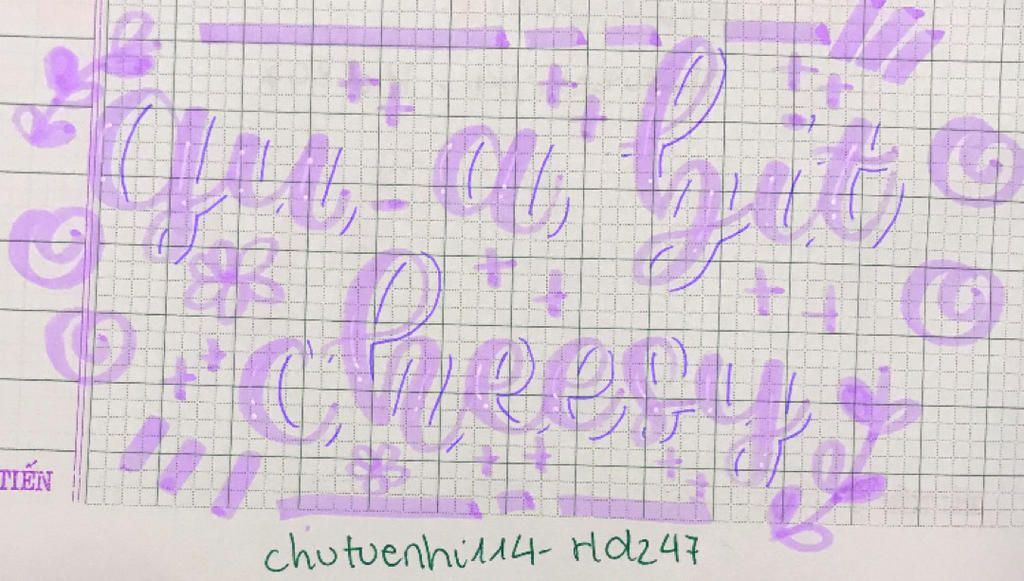 Gus - a bit
cheesy
TIẾN
chutuenhi114 - Hdz47